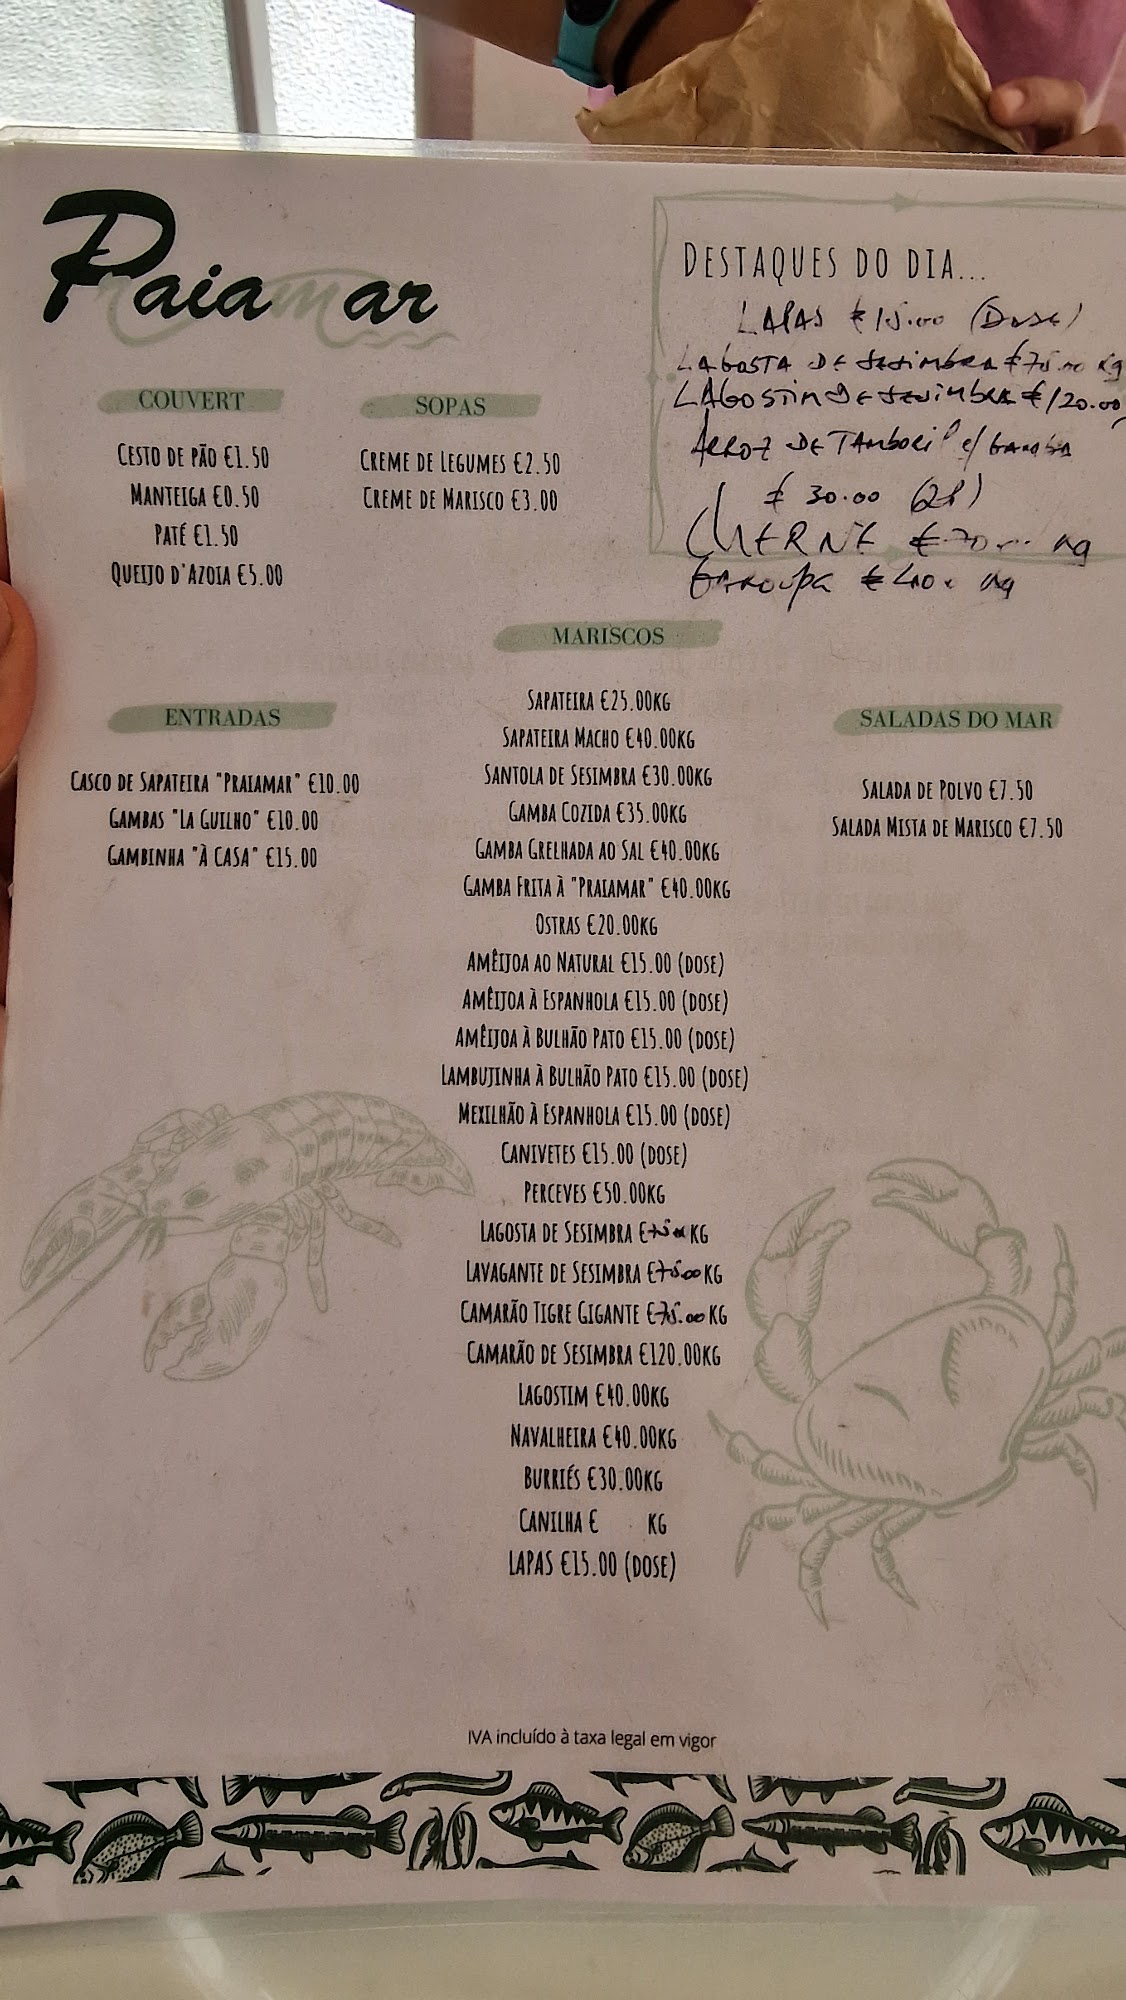 Praiamar
DESTAQUES DO DIA...
LAPAS €15.00 (DOSE)
LAGOSTA DE SESIMBRA €75.00 Kg
LAGOSTIM DE SESIMBRA €120.00
ARROZ DE TAMBORIL c/ GAMBA
€ 30.00 (2P)
CHERNE €70.00 Kg
GAROUPA €40.00 Kg
COUVERT
CESTO DE PÃO €1.50
MANTEIGA €0.50
PATÉ €1.50
QUEIJO D'AZOIA €5.00
SOPAS
CREME DE LEGUMES €2.50
CREME DE MARISCO €3.00
ENTRADAS
CASCO DE SAPATEIRA "PRAIAMAR" €10.00
GAMBAS "LA GUILHO" €10.00
GAMBINHA "À CASA" €15.00
MARISCOS
SAPATEIRA €25.00KG
SAPATEIRA MACHO €40.00KG
SANTOLA DE SESIMBRA €30.00KG
GAMBA COZIDA €35.00KG
GAMBA GRELHADA AO SAL €40.00KG
GAMBA FRITA À "PRAIAMAR" €40.00KG
OSTRAS €20.00KG
AMÊIJOA AO NATURAL €15.00 (DOSE)
AMÊIJOA À ESPANHOLA €15.00 (DOSE)
AMÊIJOA À BULHÃO PATO €15.00 (DOSE)
LAMBUJINHA À BULHÃO PATO €15.00 (DOSE)
MEXILHÃO À ESPANHOLA €15.00 (DOSE)
CANIVETES €15.00 (DOSE)
PERCEVES €50.00KG
LAGOSTA DE SESIMBRA €75.00 KG
LAVAGANTE DE SESIMBRA €75.00 KG
CAMARÃO TIGRE GIGANTE €75.00 KG
CAMARÃO DE SESIMBRA €120.00KG
LAGOSTIM €40.00KG
NAVALHEIRA €40.00KG
BURRIÉS €30.00KG
CANILHA € KG
LAPAS €15.00 (DOSE)
SALADAS DO MAR
SALADA DE POLVO €7.50
SALADA MISTA DE MARISCO €7.50
IVA incluído à taxa legal em vigor